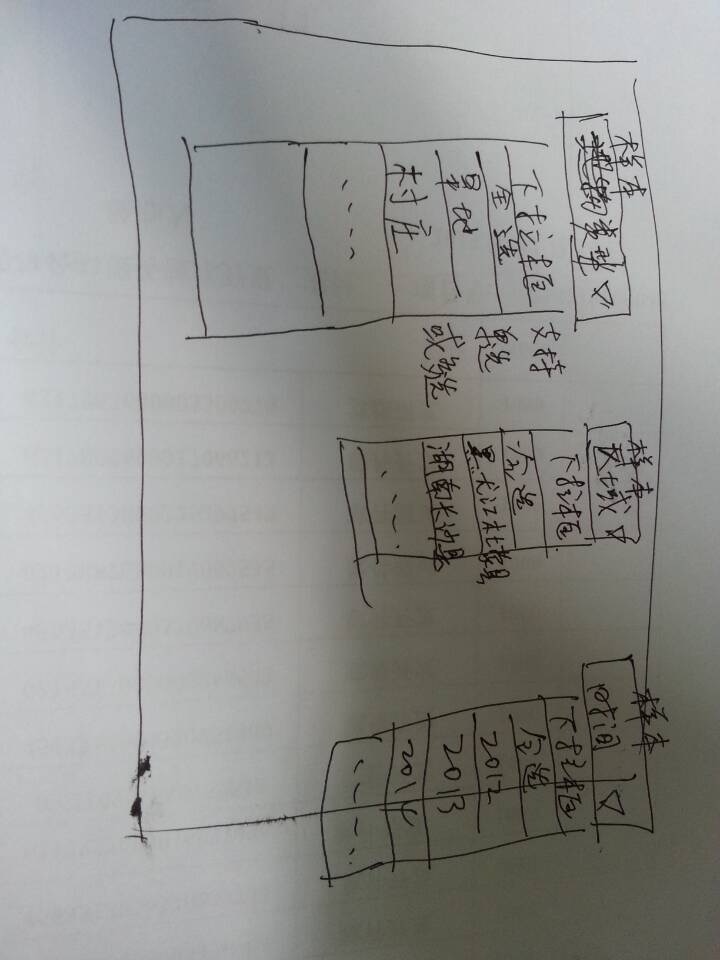 样本
地物类型 ▽
下拉框
全选
旱地
村庄
....
支持
单选
或多选
样本
区域 ▽
下拉框
全选
黑龙江
湖南长沙县
....
样本
时间 ▽
下拉框
全选
2012
2013
2014
....